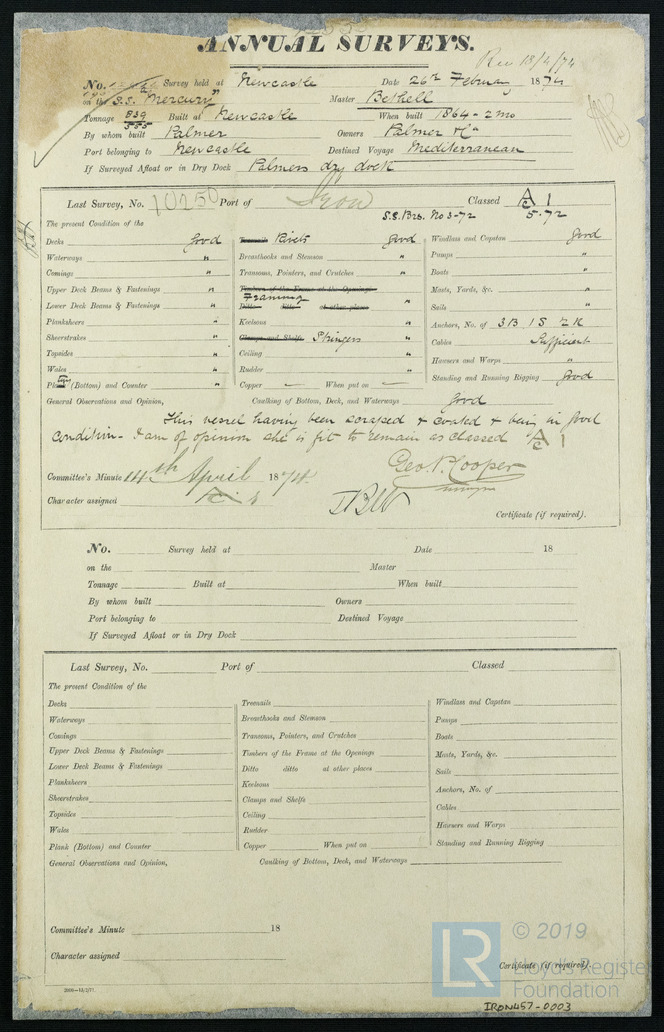 ANNUAL SURVEYS.
Rec 18/4/74
No. Survey held at Newcastle Date 26th February 1874
on the S.S. "Mercury" Master Bethell
Tonnage 839 585 Built at Newcastle When built 1864 - 2 mo
By whom built Palmer Owners Palmer & Co
Port belonging to Newcastle Destined Voyage Mediterranean
If Surveyed Afloat or in Dry Dock Palmers dry dock
Last Survey, No. 10250 Port of Iron Classed A 1
S.S. Brs. No 3-72 5.72
The present Condition of the
Decks Good Treenails Rivets Good Windlass and Capstan Good
Waterways " Breasthooks and Stemson " Pumps "
Comings " Transoms, Pointers, and Crutches " Boats "
Upper Deck Beams & Fastenings " Timbers of the Frame at the Openings Framing Masts, Yards, &c. "
Lower Deck Beams & Fastenings " Ditto ditto at other places " Sails "
Planksheers " Keelsons " Anchors, No. of 3B 1S 2K
Sheerstrakes " Clamps and Shelfs Stringers " Cables Sufficient
Topsides " Ceiling " Hawsers and Warps "
Wales " Rudder " Standing and Running Rigging Good
(Bottom) and Counter " Copper — When put on —
General Observations and Opinion, Caulking of Bottom, Deck, and Waterways Good
This vessel having been scraped & coated & being in good
condition - I am of opinion she is fit to remain as classed A 1
Committee's Minute 14th April 1874 Geo. N. Cooper
Character assigned
Certificate (if required).
No. Survey held at Date 18
on the Master
Tonnage Built at When built
By whom built Owners
Port belonging to Destined Voyage
If Surveyed Afloat or in Dry Dock
Last Survey, No. Port of Classed
The present Condition of the
Decks Treenails Windlass and Capstan
Waterways Breasthooks and Stemson Pumps
Comings Transoms, Pointers, and Crutches Boats
Upper Deck Beams & Fastenings Timbers of the Frame at the Openings Masts, Yards, &c.
Lower Deck Beams & Fastenings Ditto ditto at other places Sails
Planksheers Keelsons Anchors, No. of
Sheerstrakes Clamps and Shelfs Cables
Topsides Ceiling Hawsers and Warps
Wales Rudder Standing and Running Rigging
Plank (Bottom) and Counter Copper When put on
General Observations and Opinion, Caulking of Bottom, Deck, and Waterways
Committee's Minute 18
Character assigned
Certificate (if required).
LR © 2019
Lloyd's Register
Foundation
IRON457-0003